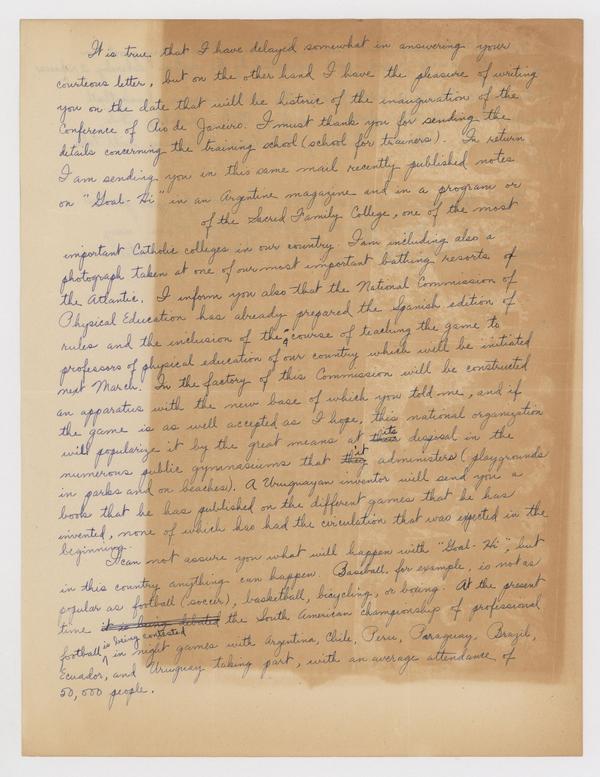 It is true that I have delayed somewhat in answering your
courteous letter, but on the other hand I have the pleasure of writing
you on the date that will be historic of the inauguration of the
Conference of Rio de Janeiro. I must thank you for sending the
details concerning the training school (school for trainers). In return
I am sending you in this same mail recently published notes
on "Goal-Hi" in an Argentine magazine and in a program or
of the Sacred Family College, one of the most
important Catholic colleges in our country. I am including also a
photograph taken at one of our most important bathing resorts of
the Atlantic. I inform you also that the National Commission of
Physical Education has already prepared the Spanish edition of
rules and the inclusion of the course of teaching the game to
professors of physical education of our country which will be initiated
next March. In the factory of this Commission will be constructed
an apparatus with the new base of which you told me, and if
the game is as well accepted as I hope, this national organization
will popularize it by the great means at their its disposal in the
numerous public gymnasiums that they it administers (playgrounds
in parks and on beaches). A Uruguayan inventor will send you a
book that he has published on the different games that he has
invented, none of which has had the circulation that was expected in the
beginning.
I can not assure you what will happen with "Goal-Hi", but
in this country anything can happen. Baseball, for example, is not as
popular as football (soccer), basketball, bicycling, or boxing. At the present
time it is being debated the South American championship of professional
football is being contested in night games with Argentina, Chile, Peru, Paraguay, Brazil,
Ecuador, and Uruguay taking part, with an average attendance of
50,000 people.